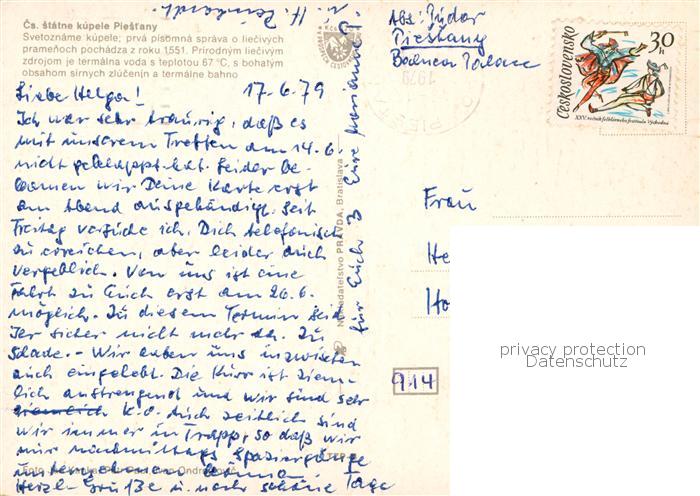 Čs. štátne kúpele Piešťany
Svetoznáme kúpele; prvá písomná správa o liečivých
prameňoch pochádza z roku 1551. Prírodným liečivým
zdrojom je termálna voda s teplotou 67 °C, s bohatým
obsahom sírnych zlúčenín a termálne bahno
17-6-79
Liebe Helga!
Ich war sehr traurig, daß es
mit unserem Treffen am 14.6.
nicht geklappt hat. Leider be-
kamen wir Deine Karte erst
am Abend ausgehändigt. Seit
Freitag versuche ich, Dich telefonisch
zu erreichen, aber leider auch
vergeblich. Von uns ist eine
Fahrt zu Euch erst am 26.6.
möglich. Zu diesem Termin seid
Ihr sicher nicht mehr da. Zu
schade. - Wir haben uns inzwischen
auch eingelebt. Die Kur ist ziem-
lich anstrengend und wir sind sehr
ziemlich k.o. Auch zeitlich sind
wir immer in Trapp, so daß wir
nur nachmittags Spaziergänge
unternehmen können.
Herzl. Grüße u. noch schöne Tage
für Euch 3 Eure Marianne
u. H.
Nakladateľstvo PRAVDA, Bratislava
Abs: Jüdar
Piestany
Balnea Palace
Československo
30 h
XXV. ročník folklórneho festivalu Východná
1979
Frau
He
Ho
914
privacy protection
Datenschutz